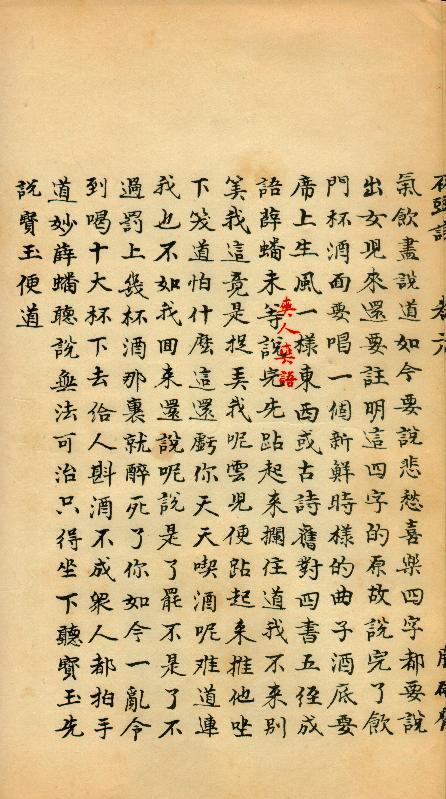 氣飲盡說道如今要說悲愁喜樂四字都要說
出女兒來還要註明這四字的原故說完了飲
門杯酒面要唱一個新鮮時樣的曲子酒底要
席上生風一樣東西或古詩舊對四書五經成
真人真語
語薛蟠未等說完先跕起來攔住道我不來別
筭我這竟是捉弄我呢雲兒便跕起來推他坐
下笑道怕什麽這還虧你天天喫酒呢难道連
我也不如我囬来還說呢說是了罷不是了不
過罰上幾杯酒那裏就醉死了你如今一亂令
到喝十大杯下去給人斟酒不成衆人都拍手
道妙薛蟠聽說無法可治只得坐下聽寶玉先
說寶玉便道